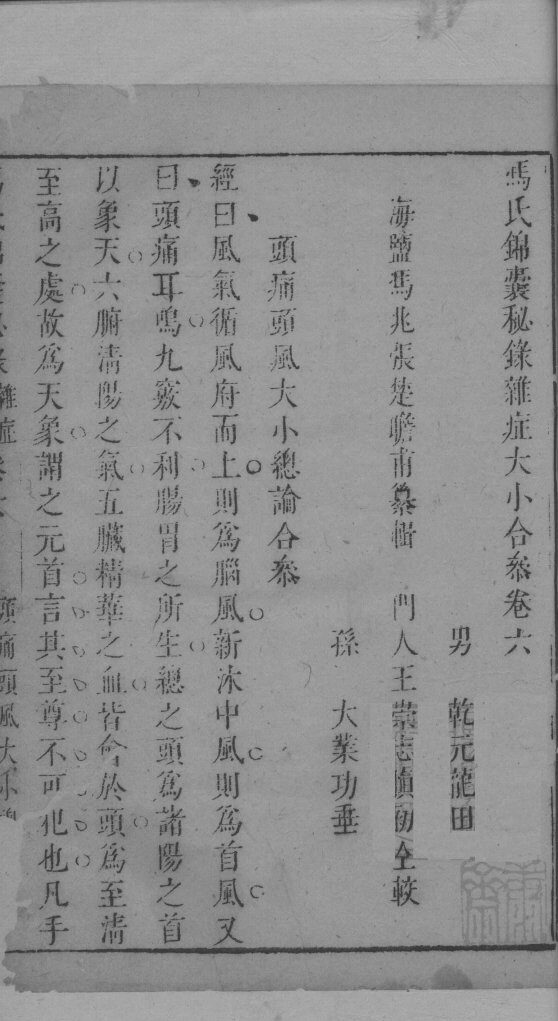 馮氏錦囊秘錄雜症大小合叅卷六
男　乾元龍田
海鹽馮兆張楚瞻甫纂輯　門人王崇志慎勷仝較
孫　大業功垂
頭痛頭風大小總論合叅
經曰風氣循風府而上則爲腦風新沐中風則爲首風又
曰頭痛耳鳴九竅不利腸胃之所生總之頭爲諸陽之首
以象天六腑清陽之氣五臟精華之血皆會於頭爲至清
至高之處故爲天象謂之元首言其至尊不可犯也凡手
雜症卷六　頭痛頭風大小